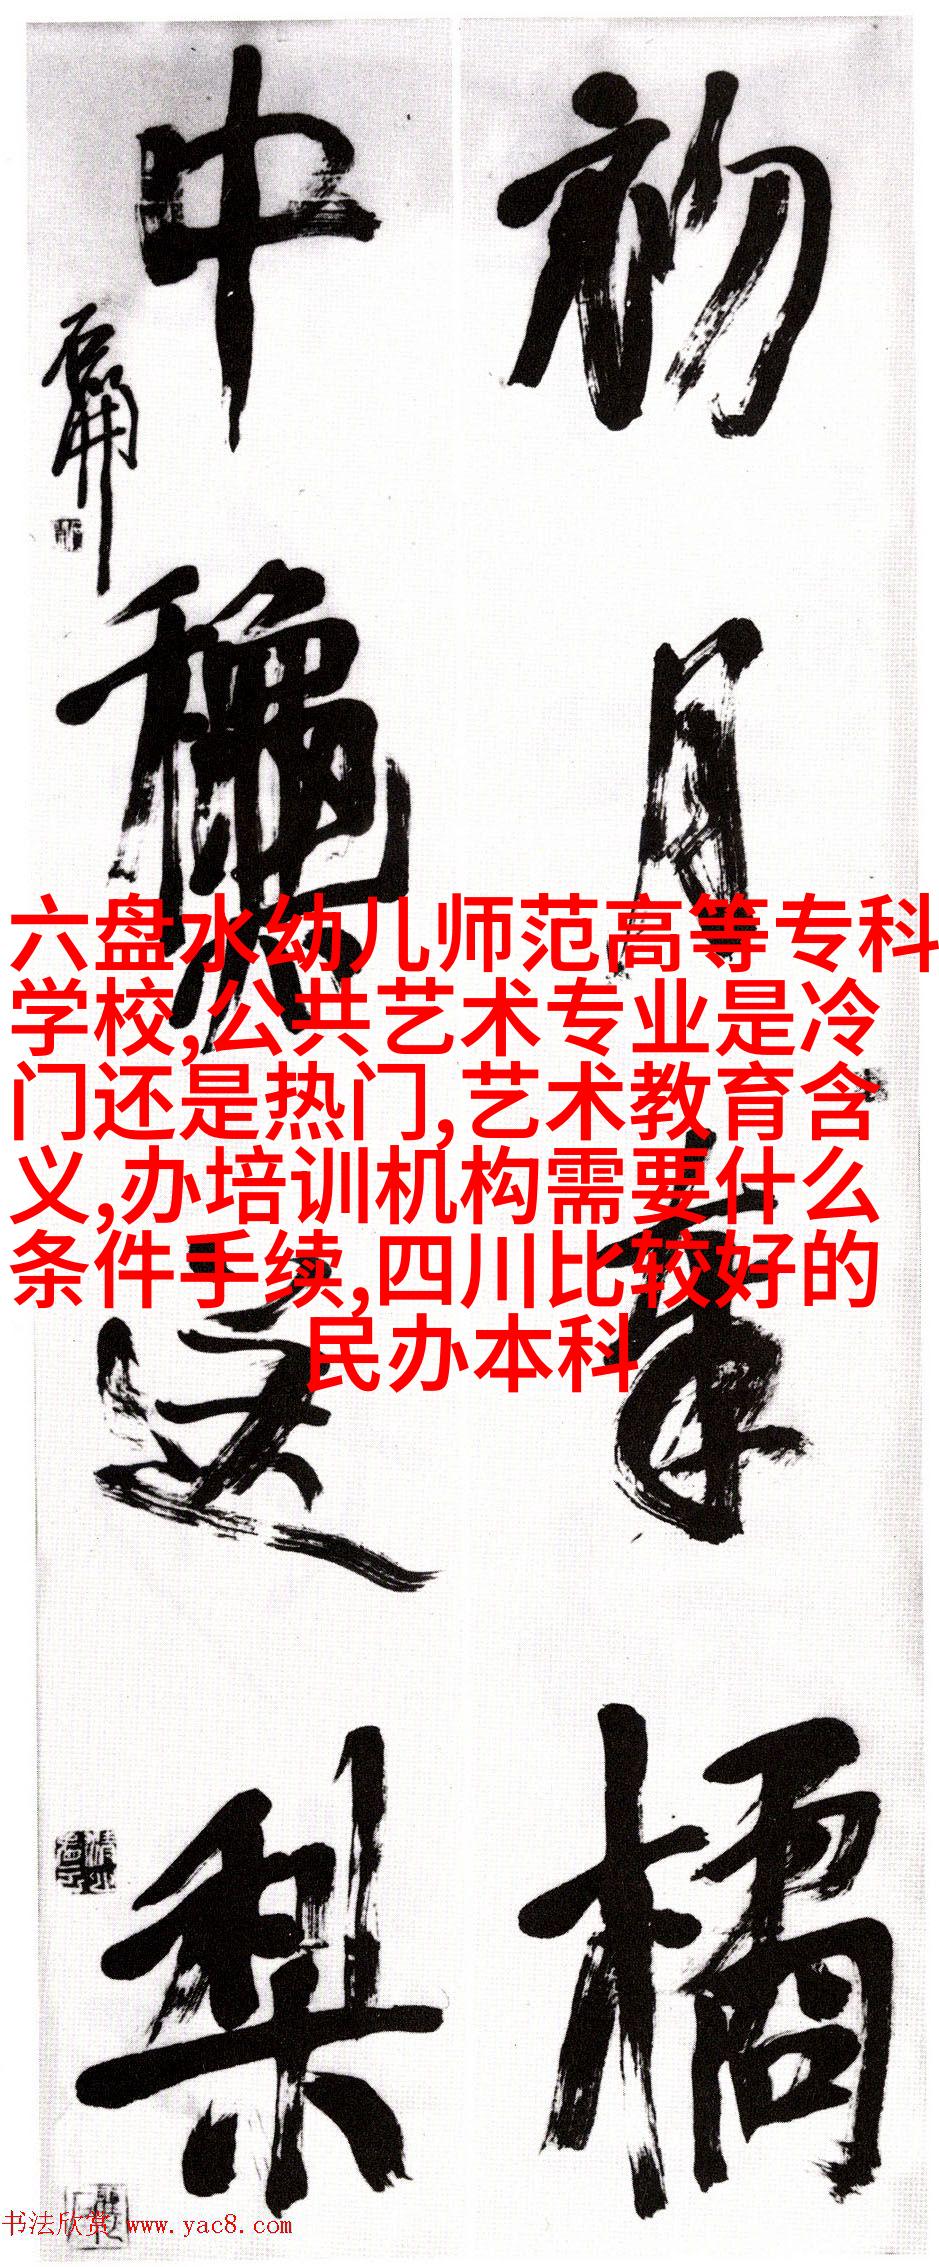 初月橘
中梨
六盘水幼儿师范高等专科
学校,公共艺术专业是冷
门还是热门,艺术教育含
义,办培训机构需要什么
条件手续,四川比较好的
民办本科
书法欣赏 www.yac8.com